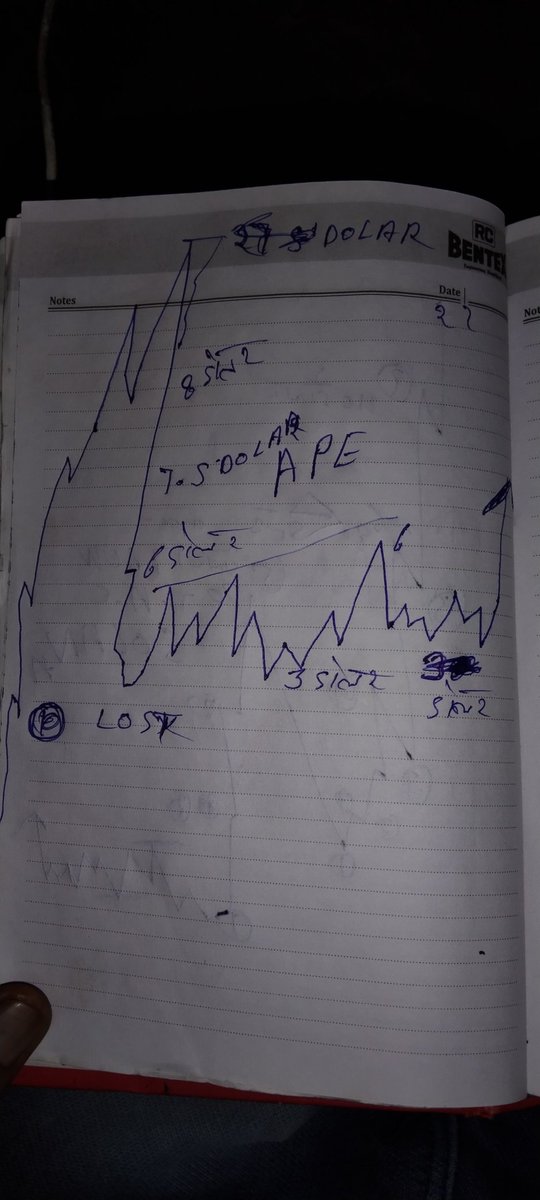 DOLAR
RC
BENTEX
Notes
Date
8 डॉलर
7.5 DOLAR
APE
6 डॉलर
6
3 डॉलर
डॉलर